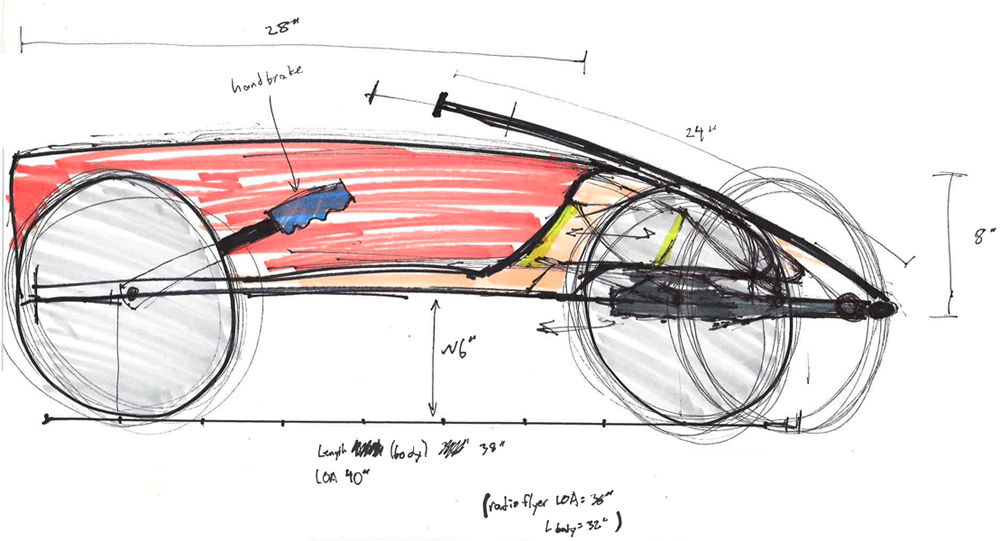 28"
handbrake
24"
8"
~6"
Length (body) 38"
LOA 40"
(radio flyer LOA = 38"
L body = 32")